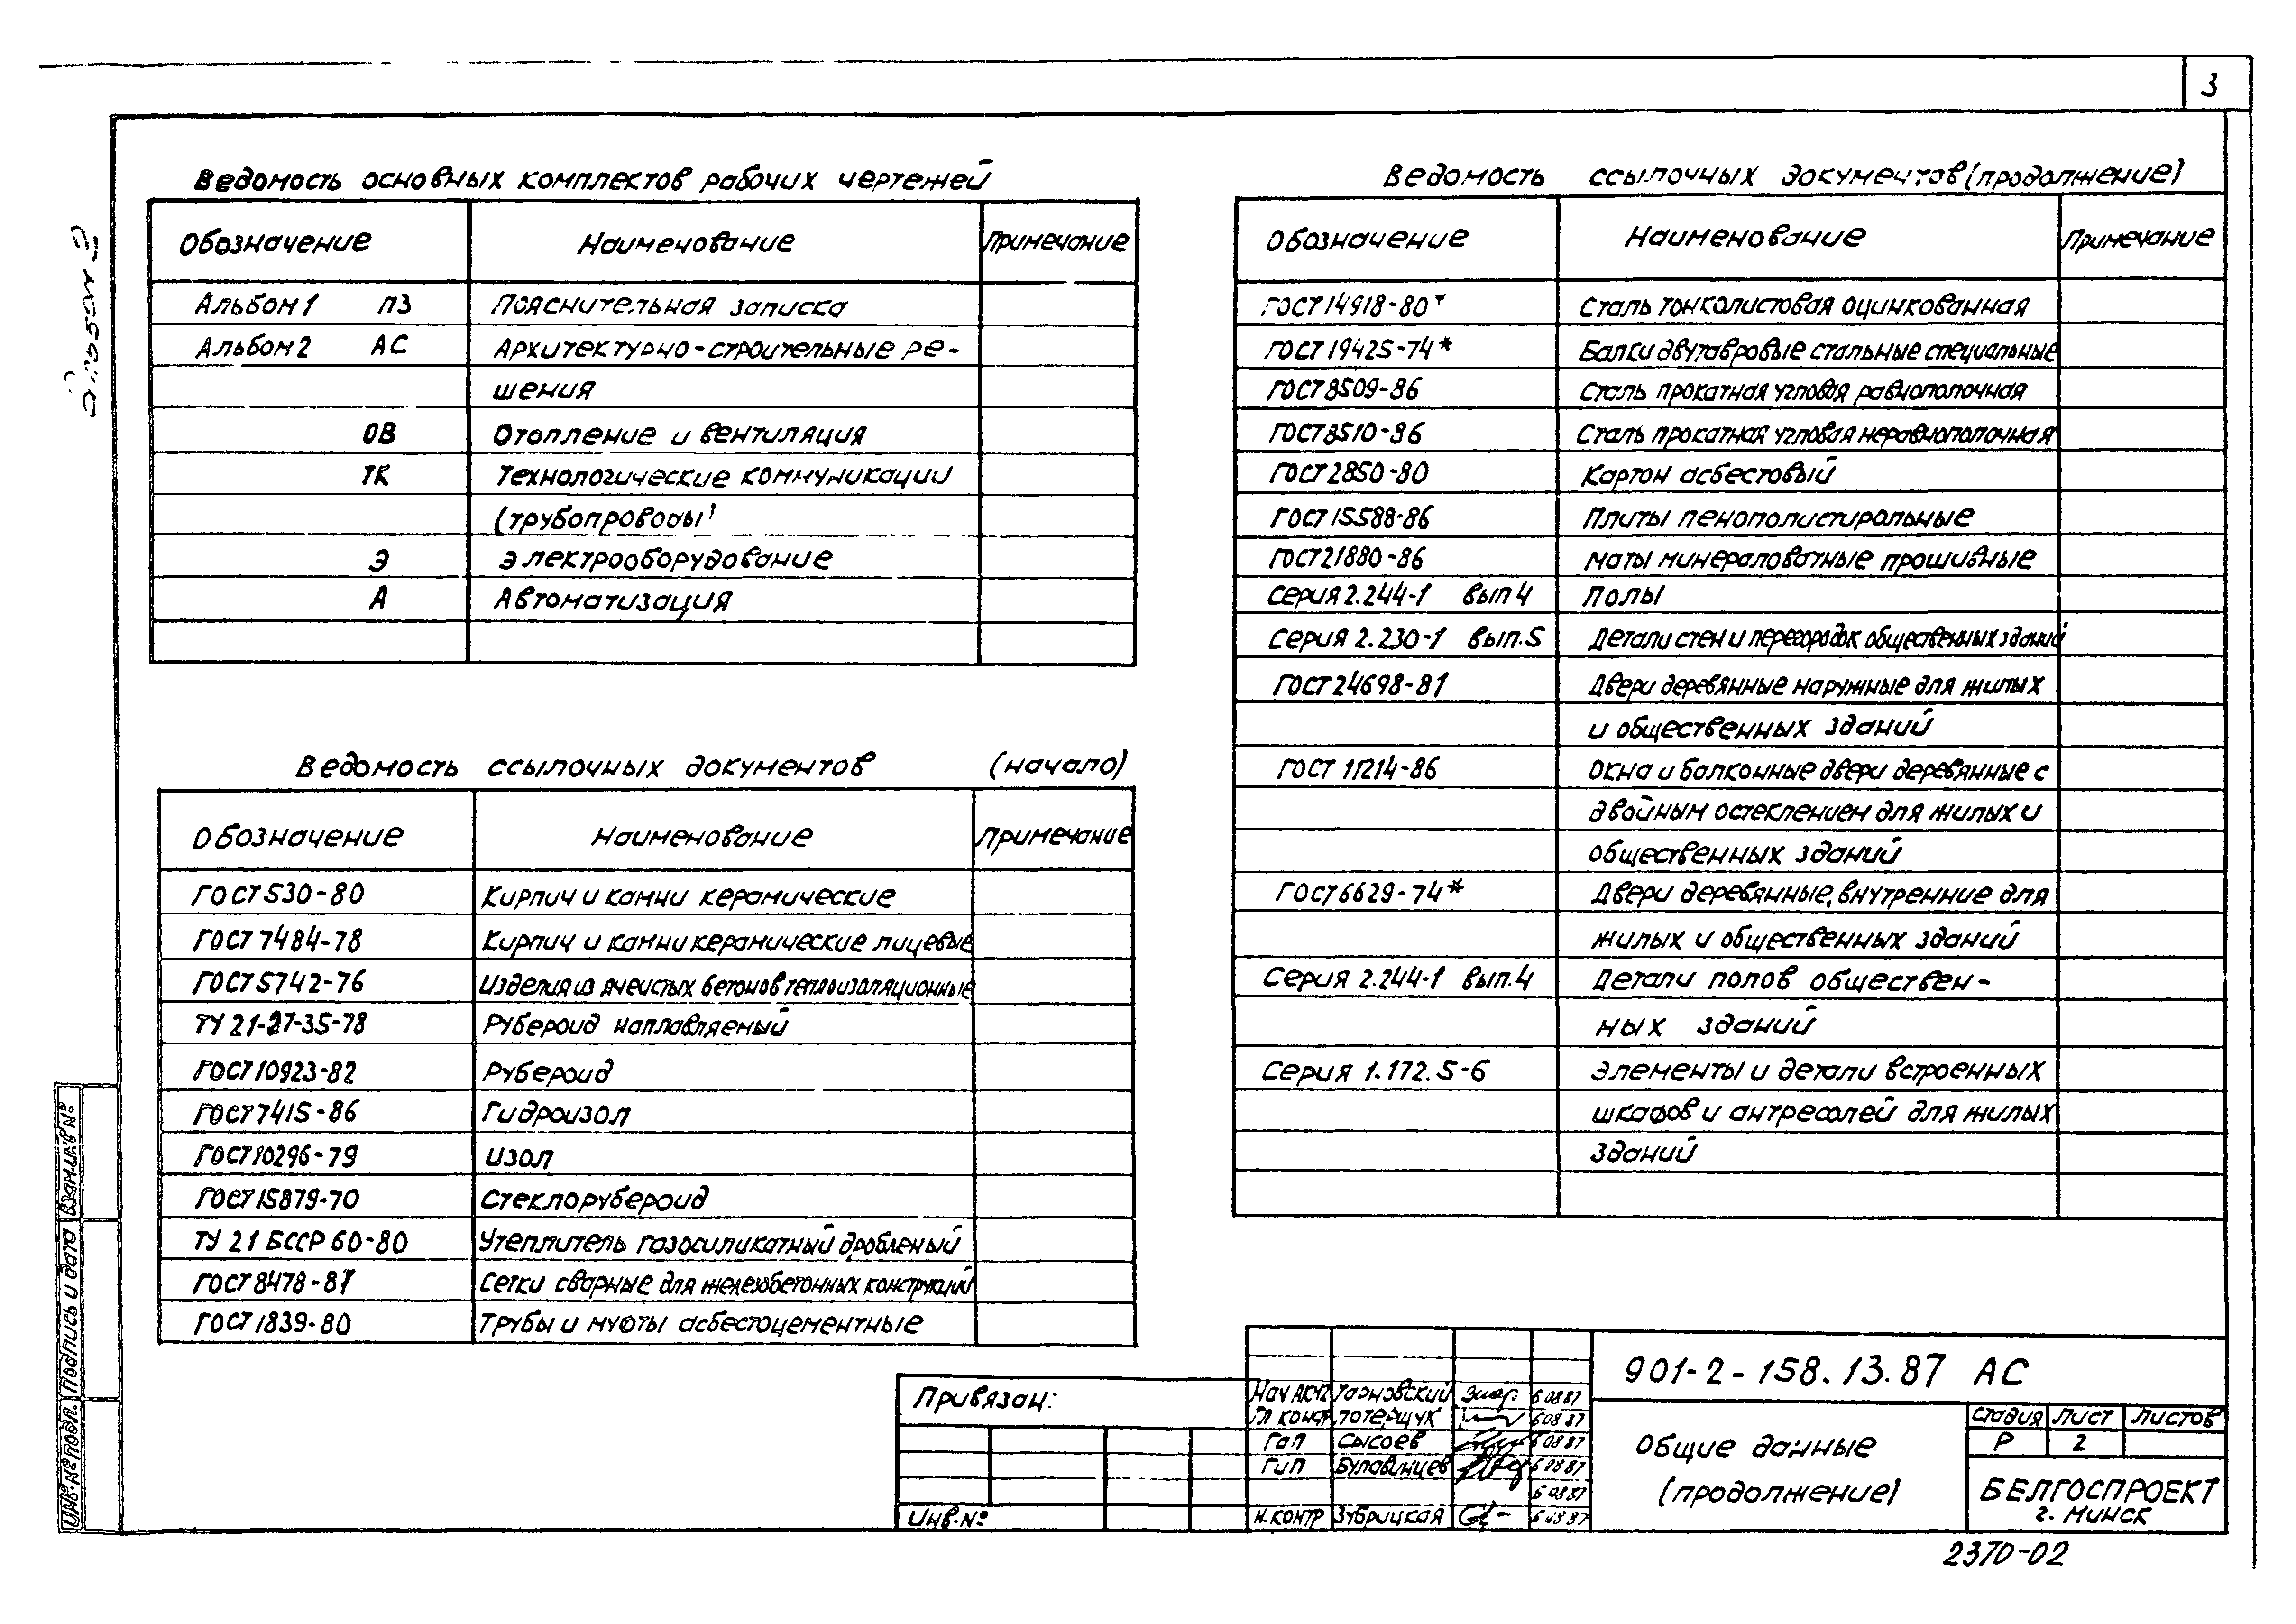 3
Альбом 2
Ведомость основных комплектов рабочих чертежей
Обозначение Наименование Примечание
Альбом 1 ПЗ Пояснительная записка
Альбом 2 АС Архитектурно-строительные ре-
шения
ОВ Отопление и вентиляция
ТК Технологические коммуникации
(трубопроводы)
Э Электрооборудование
А Автоматизация
Ведомость ссылочных документов (начало)
Обозначение Наименование Примечание
ГОСТ 530-80 Кирпич и камни керамические
ГОСТ 7484-78 Кирпич и камни керамические лицевые
ГОСТ 5742-76 Изделия из ячеистых бетонов теплоизоляционные
ТУ 21-27-35-78 Рубероид наплавляемый
ГОСТ 10923-82 Рубероид
ГОСТ 7415-86 Гидроизол
ГОСТ 10296-79 Изол
ГОСТ 15879-70 Стеклорубероид
ТУ 21 БССР 60-80 Утеплитель газосиликатный дробленый
ГОСТ 8478-81 Сетки сварные для железобетонных конструкций
ГОСТ 1839-80 Трубы и муфты асбестоцементные
Ведомость ссылочных документов (продолжение)
Обозначение Наименование Примечание
ГОСТ 14918-80* Сталь тонколистовая оцинкованная
ГОСТ 19425-74* Балки двутавровые стальные специальные
ГОСТ 8509-86 Сталь прокатная угловая равнополочная
ГОСТ 8510-86 Сталь прокатная угловая неравнополочная
ГОСТ 2850-80 Картон асбестовый
ГОСТ 15588-86 Плиты пенополистирольные
ГОСТ 21880-86 Маты минераловатные прошивные
Серия 2.244-1 вып 4 Полы
Серия 2.230-1 вып.5 Детали стен и перегородок общественных зданий
ГОСТ 24698-81 Двери деревянные наружные для жилых
и общественных зданий
ГОСТ 11214-86 Окна и балконные двери деревянные с
двойным остеклением для жилых и
общественных зданий
ГОСТ 6629-74* Двери деревянные, внутренние для
жилых и общественных зданий
Серия 2.244-1 вып.4 Детали полов обществен-
ных зданий
Серия 1.172.5-6 Элементы и детали встроенных
шкафов и антресолей для жилых
зданий
Взам.инв№
Подпись и дата
Инв.№ подл.
Привязан:
Инв.№
Нач АКМ2 Тарновский 6 08 87
Гл констр Потерщук 6 08 87
ГАП Сысоев 6 08 87
ГИП Булавинцев 6 08 87
6 08 87
Н.контр Зубрицкая 6 08 87
901-2-158.13.87 АС
Общие данные
(продолжение)
Стадия Лист Листов
Р 2
БЕЛГОСПРОЕКТ
г. Минск
2370-02